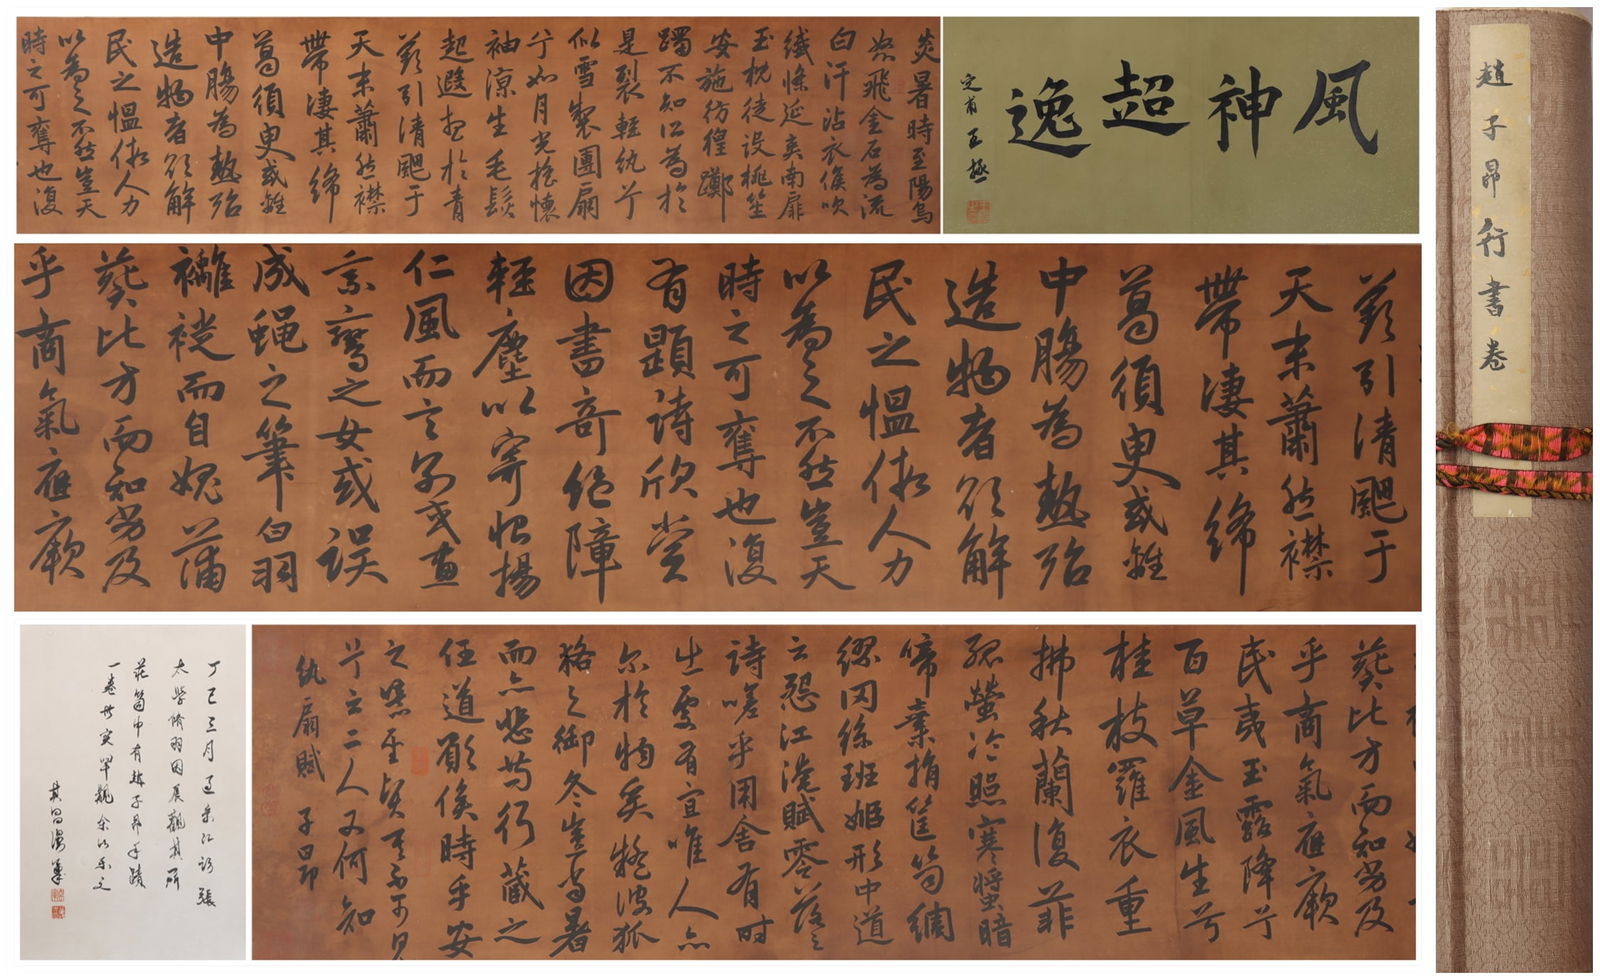 風神超逸
定甫王極
趙子昂行書卷
炎暑時至陽烏
怒飛金石為流
白汗沾衣倏吹
纖絺延爽南扉
玉枕徒設桃笙
安施彷徨躑
躅不知所為於
是裂輕紈兮
似雪製團扇
兮如月光搖懷
袖涼生毛髮
起遐想於青
蘋引清颸于
天末蕭然襟
帶凄其絺
葛須臾或離
中腸為熱殆
造物者欲解
民之慍假人力
以為之不然豈天
時之可奪也復
蘋引清颸于
天末蕭然襟
帶凄其絺
葛須臾或離
中腸為熱殆
造物者欲解
民之慍假人力
以為之不然豈天
時之可奪也復
有題詩欣賞
因書奇絕障
輕塵以寄恨揚
仁風而言別或畫
乘鸞之女或誤
成蠅之筆白羽
襳褷而自媿蒲
葵比方而知劣及
乎商氣應厥
葵比方而知劣及
乎商氣應厥
民夷玉露降兮
百草金風生兮
桂枝羅衣重
拂秋蘭復菲
孤螢冷照寒螿暗
啼棄捐篋笥綢
繆罔終班姬形中道
之怨江淹賦零落之
詩嗟乎用舍有時
出處有宜唯人亦
尔於物奚疑彼狐
貉之御冬豈當暑
而亦悲苟行藏之
任道願俟時乎安
之噫至賢不可見
兮云二人又何知
紈扇賦 子昂
丁巳三月道吳江訪張
太學脩羽因展觀其所
莊笥中有趙子昂手蹟
一卷世實罕覯余以示之
其昌漫筆